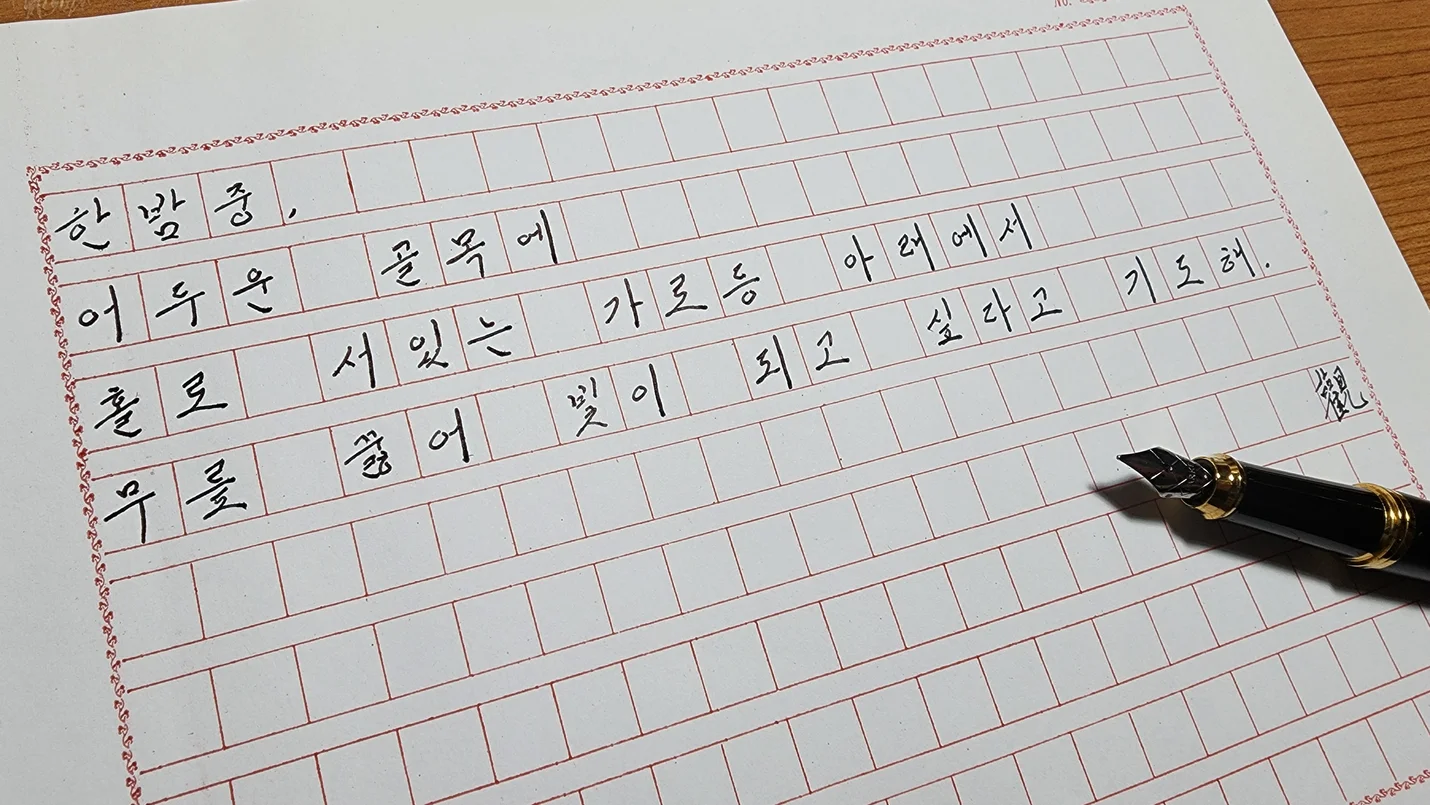 한밤중,
어두운 골목에
홀로 서있는 가로등 아래에서
무릎 꿇어 빛이 되고 싶다고 기도해.
觀